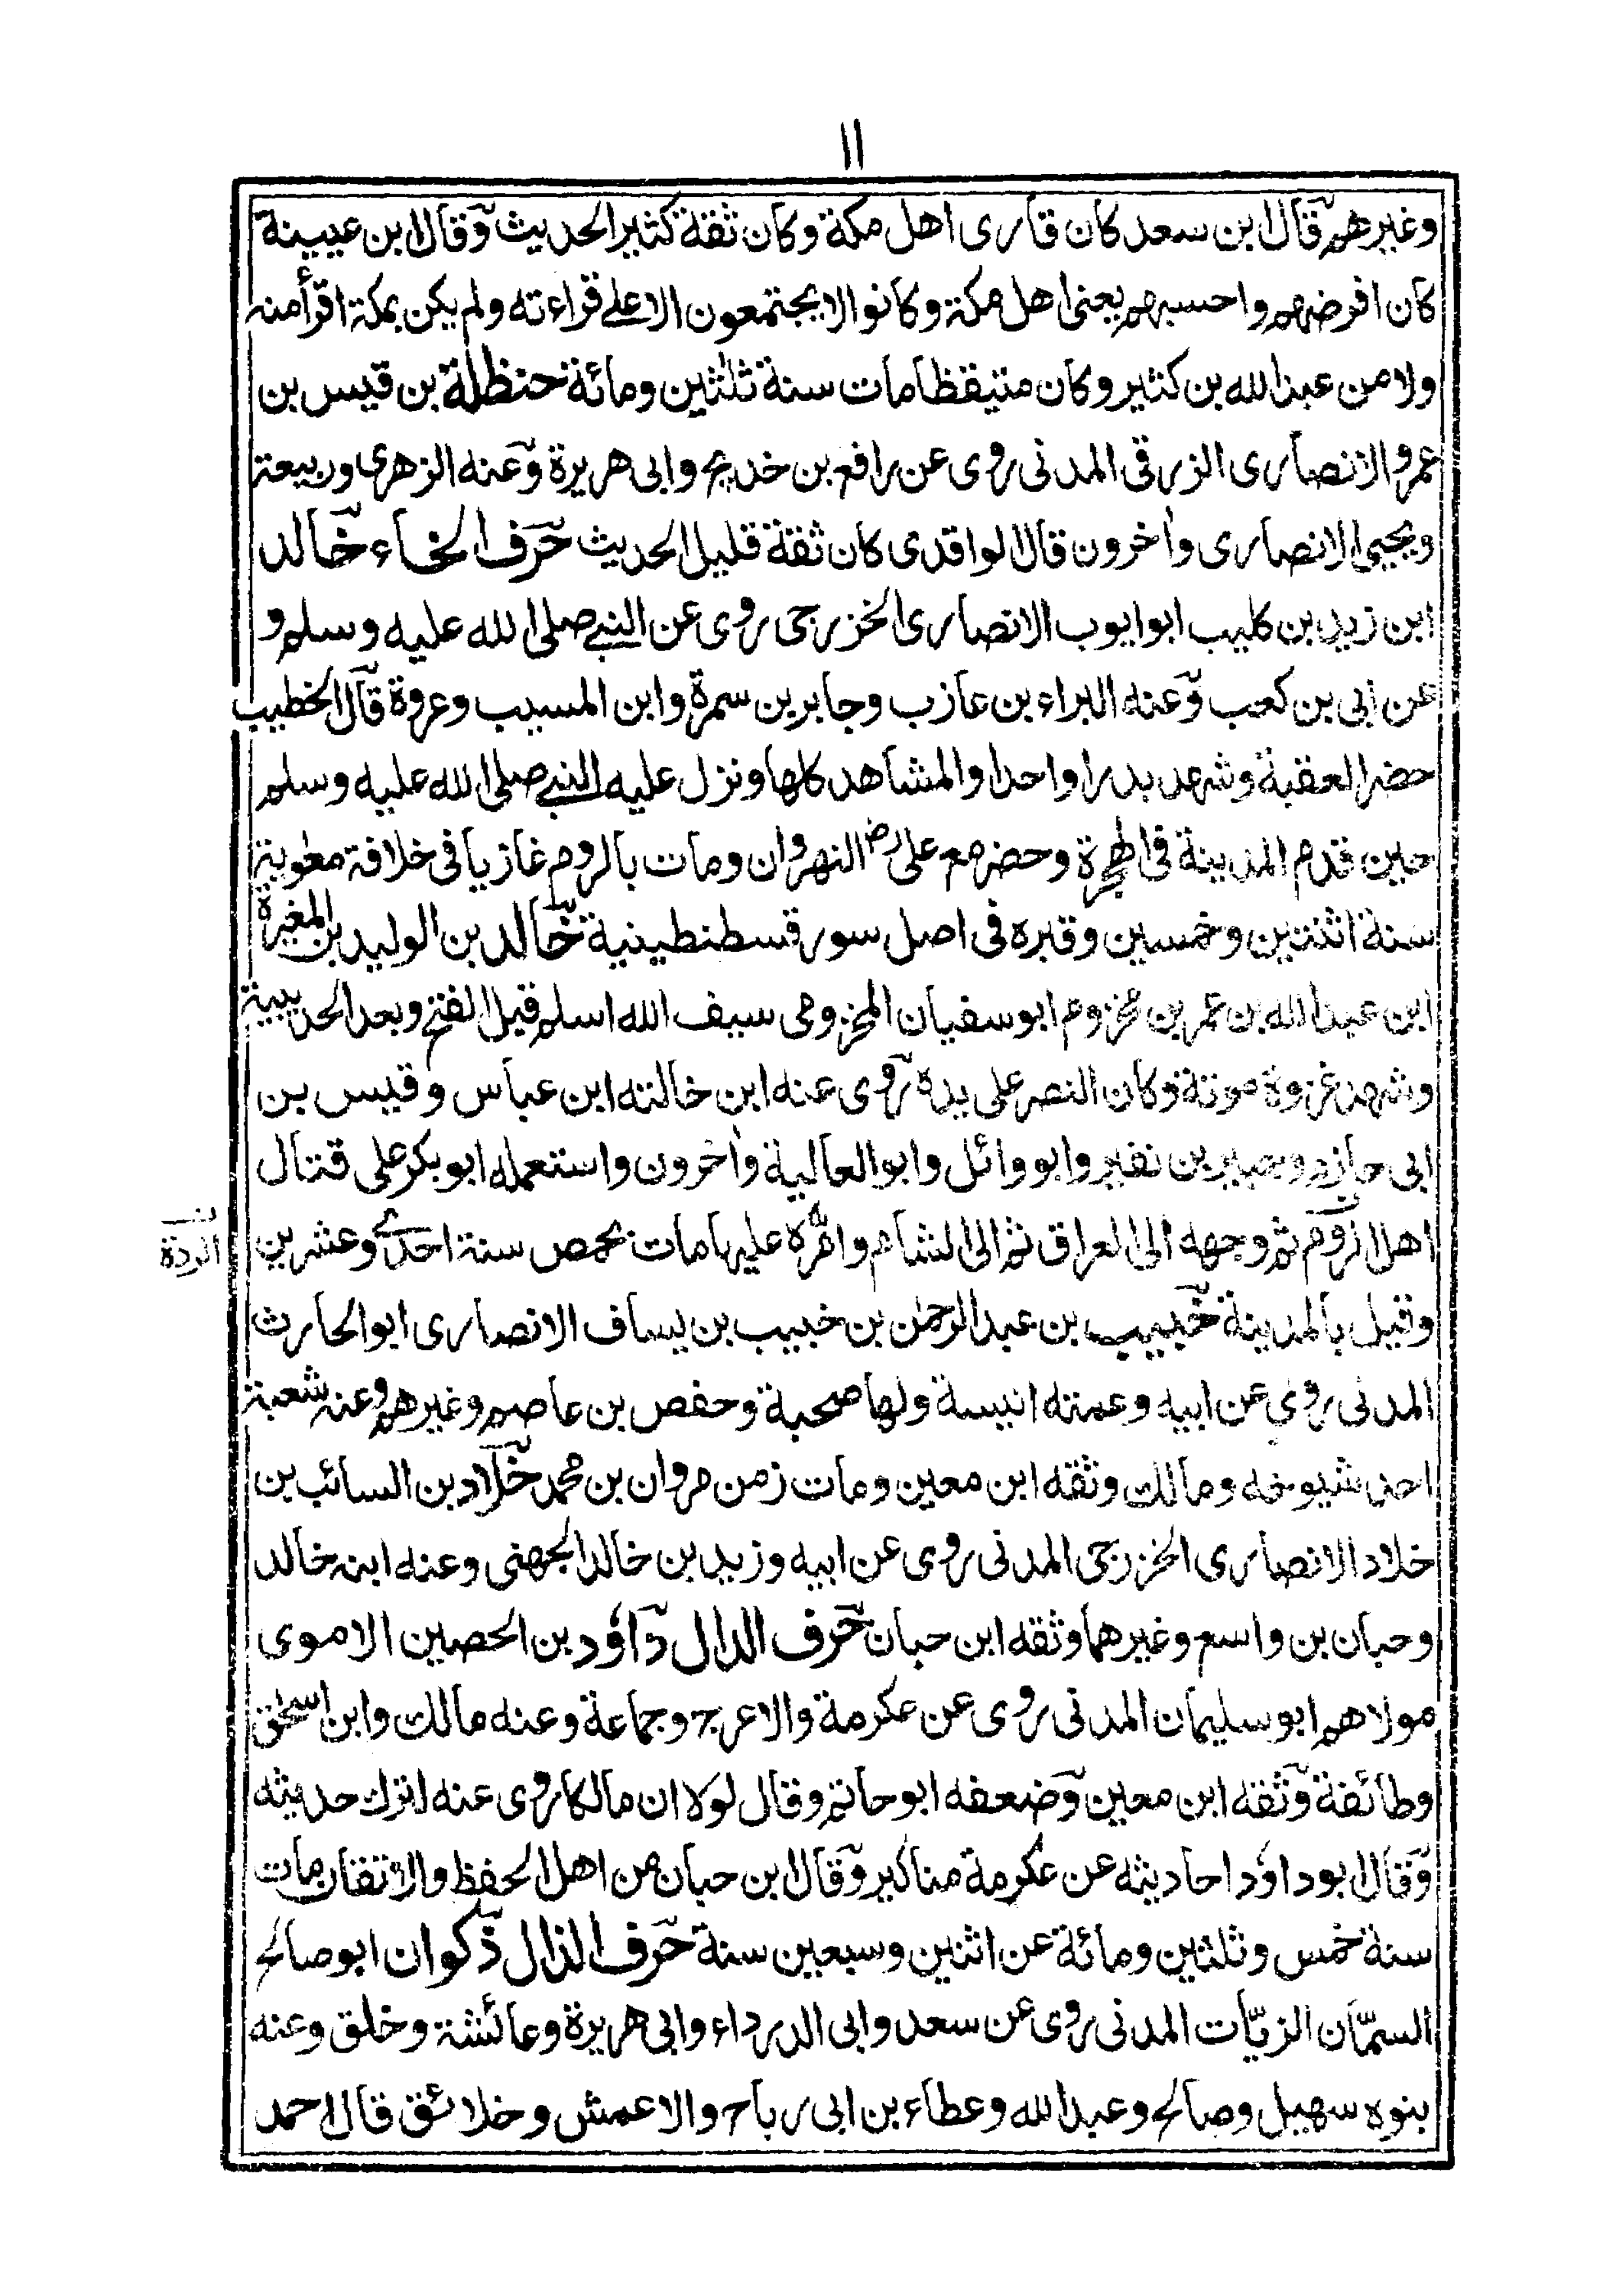 ١١
وغيرهم قال ابن سعد كان قارى اهل مكة وكان ثقة كثير الحديث وقال ابن عيينة
كان افرضهم واحسبهم يعنى اهل مكة وكانوا لا يجتمعون الا على قراءته ولم يكن بمكة اقرأ منه
ولا من عبد الله بن كثير وكان متيقظا مات سنة ثلثين ومائة حنظلة بن قيس بن
عمرو الانصارى الزرقى المدنى روى عن رافع بن خديج وابى هريرة وعنه الزهرى وربيعة
ويحيى الانصارى واٰخرون قال الواقدى كان ثقة قليل الحديث حرف الخاء خالد
ابن زيد بن كليب ابو ايوب الانصارى الخزرجى روى عن النبي صلى الله عليه وسلم و
عن ابى بن كعب وعنه البراء بن عازب وجابر بن سمرة وابن المسيب وعروة قال الخطيب
حضر العقبة وشهد بدرا واحدا والمشاهد كلها ونزل عليه النبي صلى الله عليه وسلم
حين قدم المدينة فى الهجرة وحضر مع على رض النهروان ومات بالروم غازيا فى خلافة معٰوية
سنة اثنتين وخمسين وقبره فى اصل سور قسطنطينية خالد بن الوليد بن المغيرة
ابن عبد الله بن عمر بن مخزوم ابو سفيان المخزومى سيف الله اسلم قبل الفتح وبعد الحديبية
وشهد غزوة موتة وكان النصر على يده روى عنه ابن خالته ابن عباس وقيس بن
ابى حازم وجبير بن نفير وابو وائل وابو العالية واٰخرون واستعمله ابو بكر على قتال
اهل الروم ثم وجهه الى العراق ثم الى الشام وامّره عليها مات بحمص سنة احدى وعشرين
الردة
وقيل بالمدينة خبيب بن عبد الرحمٰن بن خبيب بن يساف الانصارى ابو الحارث
المدنى روى عن ابيه وعمته انيسة ولها صحبة وحفص بن عاصم وغيرهم وعنه شعبة
احد شيوخه ومالك وثقه ابن معين ومات زمن مروان بن محمد خلاد بن السائب بن
خلاد الانصارى الخزرجى المدنى روى عن ابيه وزيد بن خالد الجهنى وعنه ابنه خالد
وحبان بن واسع وغيرهما وثقه ابن حبان حرف الدال داؤد بن الحصين الاموى
مولاهم ابو سليمان المدنى روى عن عكرمة والاعرج وجماعة وعنه مالك وابن اسحٰق
وطائفة وثقه ابن معين وضعفه ابو حاتم وقال لولا ان مالكا روى عنه لترك حديثه
وقال ابو داؤد احاديثه عن عكرمة مناكير وقال ابن حبان من اهل الحفظ والاتقان مات
سنة خمس وثلثين ومائة عن اثنين وسبعين سنة حرف الذال ذكوان ابو صالح
السمّان الزيّات المدنى روى عن سعد وابى الدرداء وابى هريرة وعائشة وخلق وعنه
بنوه سهيل وصالح وعبد الله وعطاء بن ابى رباح والاعمش وخلائق قال احمد